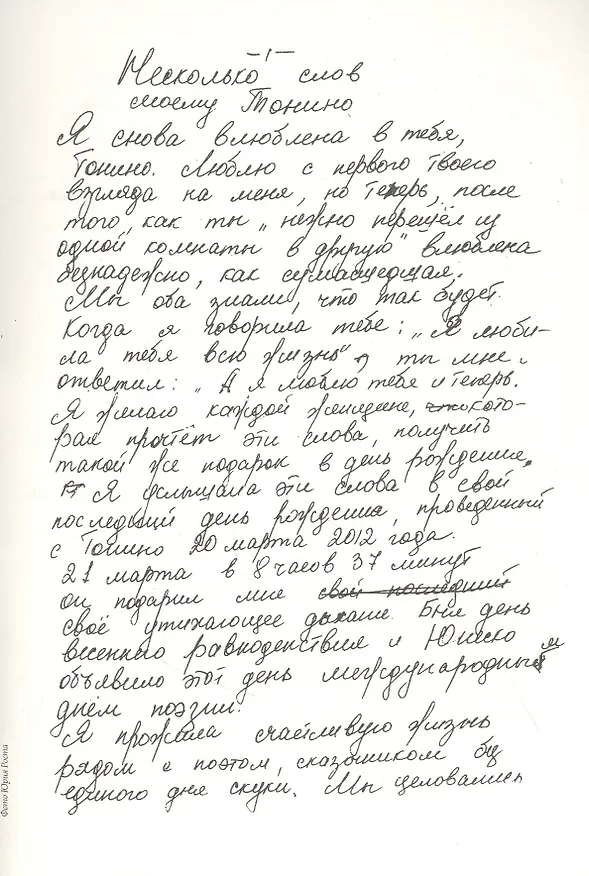 -1-
Несколько слов
моему Тонино
Я снова влюблена в тебя,
Тонино. Люблю с первого твоего
взгляда на меня, но теперь, после
того, как ты „нежно перешёл из
одной комнаты в другую" влюблена
безнадежно, как сумасшедшая.
Мы оба знали, что так будет.
Когда я говорила тебе: „Я люби-
ла тебя всю жизнь", ты мне
ответил: „А я люблю тебя и теперь.
Я желаю каждой женщине, кото-
рая прочтёт эти слова, получить
такой же подарок в день рождения.
Я услышала эти слова в свой
последний день рождения, проведенный
с Тонино 20 марта 2012 года.
21 марта в 8 часов 37 минут
он подарил мне свой последний
своё утихающее дыхание. Был день
весеннего равноденствия и Юнеско
объявило этот день международным
днём поэзии.
Я прожила счастливую жизнь
рядом с поэтом, сказочником без
единого дня скуки. Мы целовались
Фото Юрия Роста